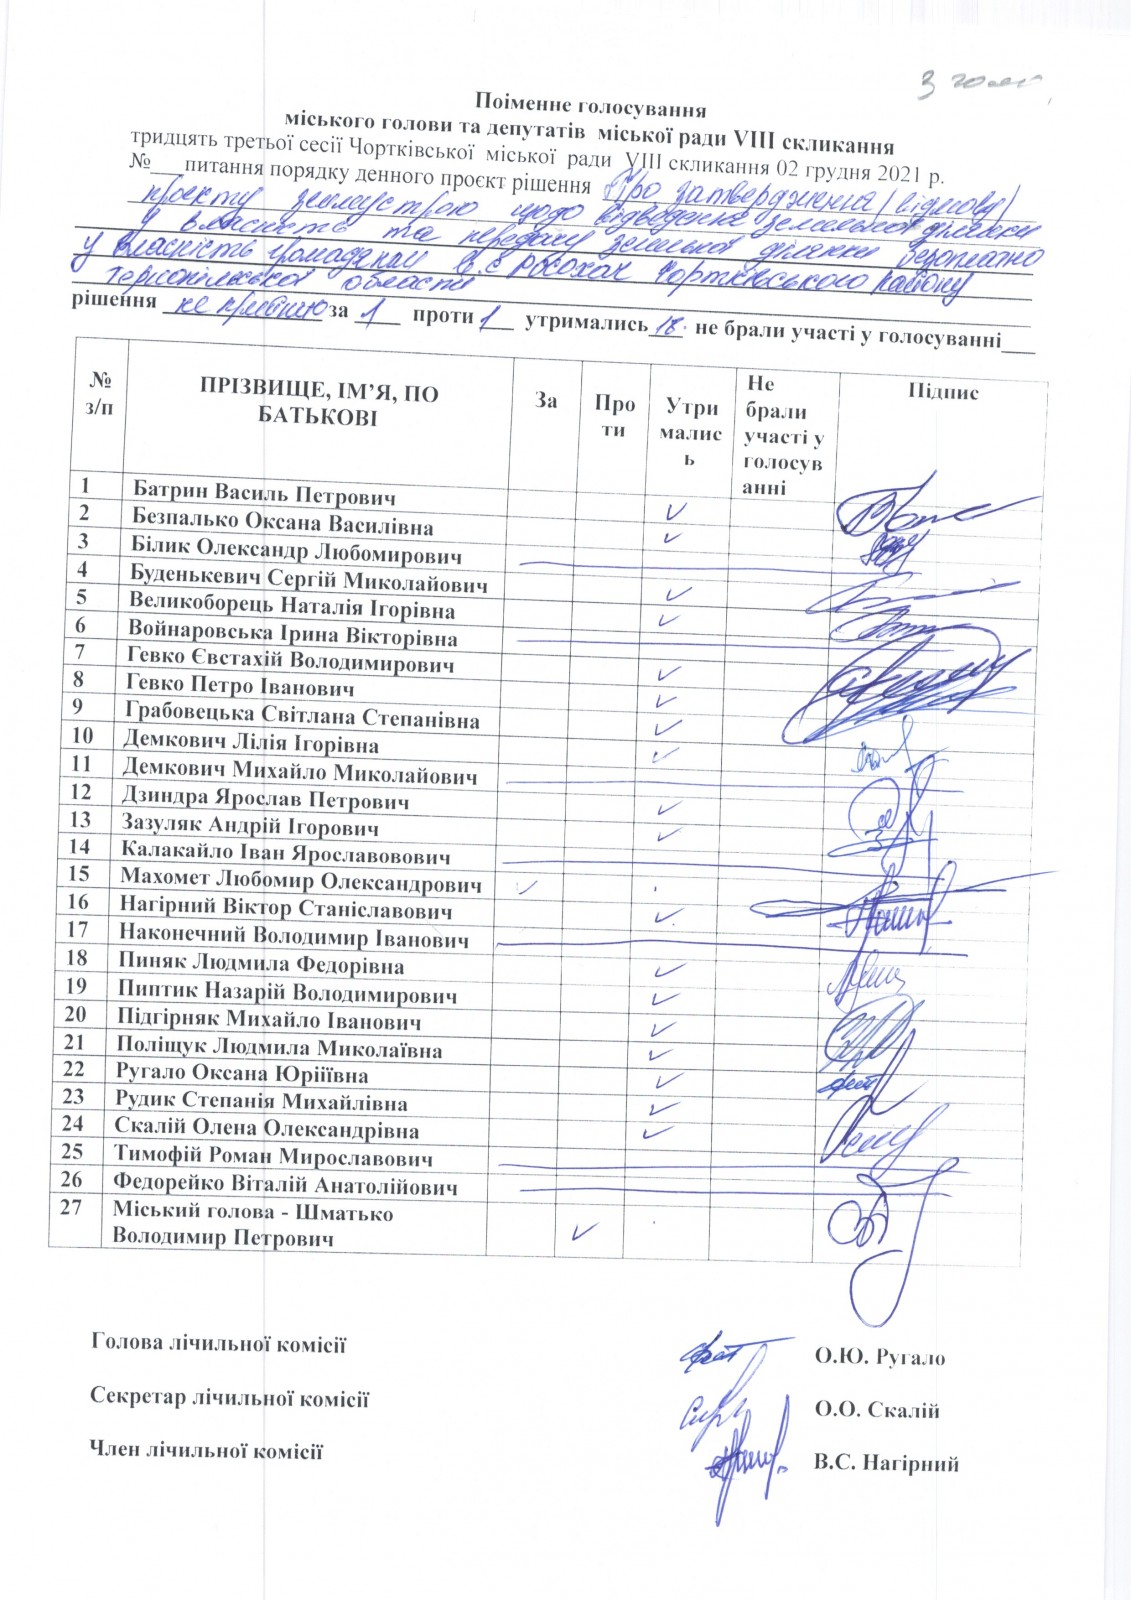 Поіменне голосування
міського голови та депутатів міської ради VIII скликання
тридцять третьої сесії Чортківської міської ради VIII скликання 02 грудня 2021 р.
№___питання порядку денного проєкт рішення Про затвердження (відмову)
проекту землеустрою щодо відведення земельної ділянки
у власність та передачу земельної ділянки безоплатно
у власність громадянам в с. Росохач Чортківського району
Тернопільської області
рішення не прийнято за 1 проти 1 утримались 18 не брали участі у голосуванні___
№ з/п ПРІЗВИЩЕ, ІМ’Я, ПО БАТЬКОВІ За Про ти Утри малис ь Не брали участі у голосув анні Підпис
1 Батрин Василь Петрович
2 Безпалько Оксана Василівна
3 Білик Олександр Любомирович
4 Буденькевич Сергій Миколайович
5 Великоборець Наталія Ігорівна
6 Войнаровська Ірина Вікторівна
7 Гевко Євстахій Володимирович
8 Гевко Петро Іванович
9 Грабовецька Світлана Степанівна
10 Демкович Лілія Ігорівна
11 Демкович Михайло Миколайович
12 Дзиндра Ярослав Петрович
13 Зазуляк Андрій Ігорович
14 Калакайло Іван Ярославовович
15 Махомет Любомир Олександрович
16 Нагірний Віктор Станіславович
17 Наконечний Володимир Іванович
18 Пиняк Людмила Федорівна
19 Пиптик Назарій Володимирович
20 Підгірняк Михайло Іванович
21 Поліщук Людмила Миколаївна
22 Ругало Оксана Юріїївна
23 Рудик Степанія Михайлівна
24 Скалій Олена Олександрівна
25 Тимофій Роман Мирославович
26 Федорейко Віталій Анатолійович
27 Міський голова - Шматько
Володимир Петрович
Голова лічильної комісії О.Ю. Ругало
Секретар лічильної комісії О.О. Скалій
Член лічильної комісії В.С. Нагірний